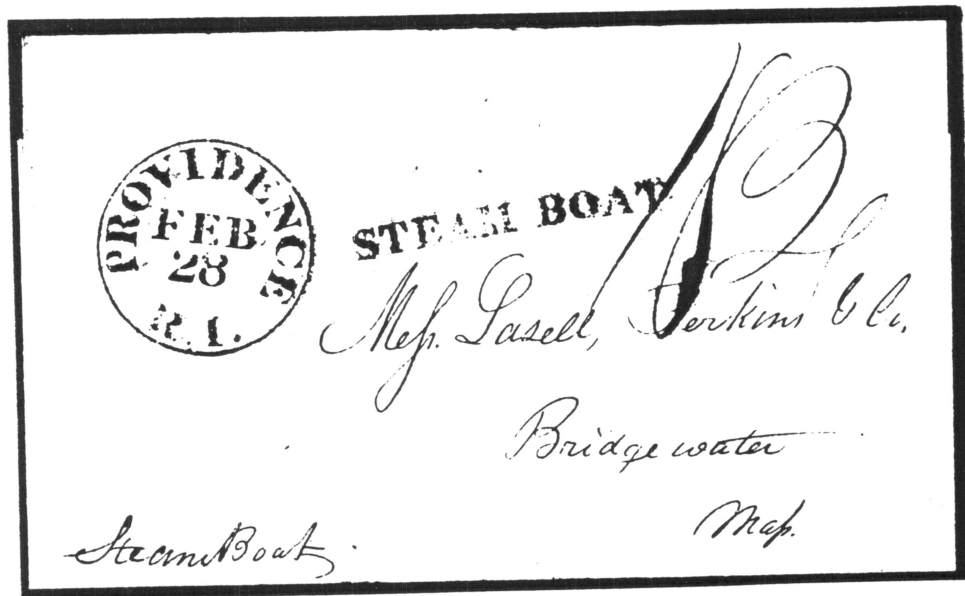 PROVIDENCE
FEB
28
R.I.
STEAM BOAT
12
Mess. Lasell, Perkins & Co.
Bridgewater
Mass.
Steam Boat